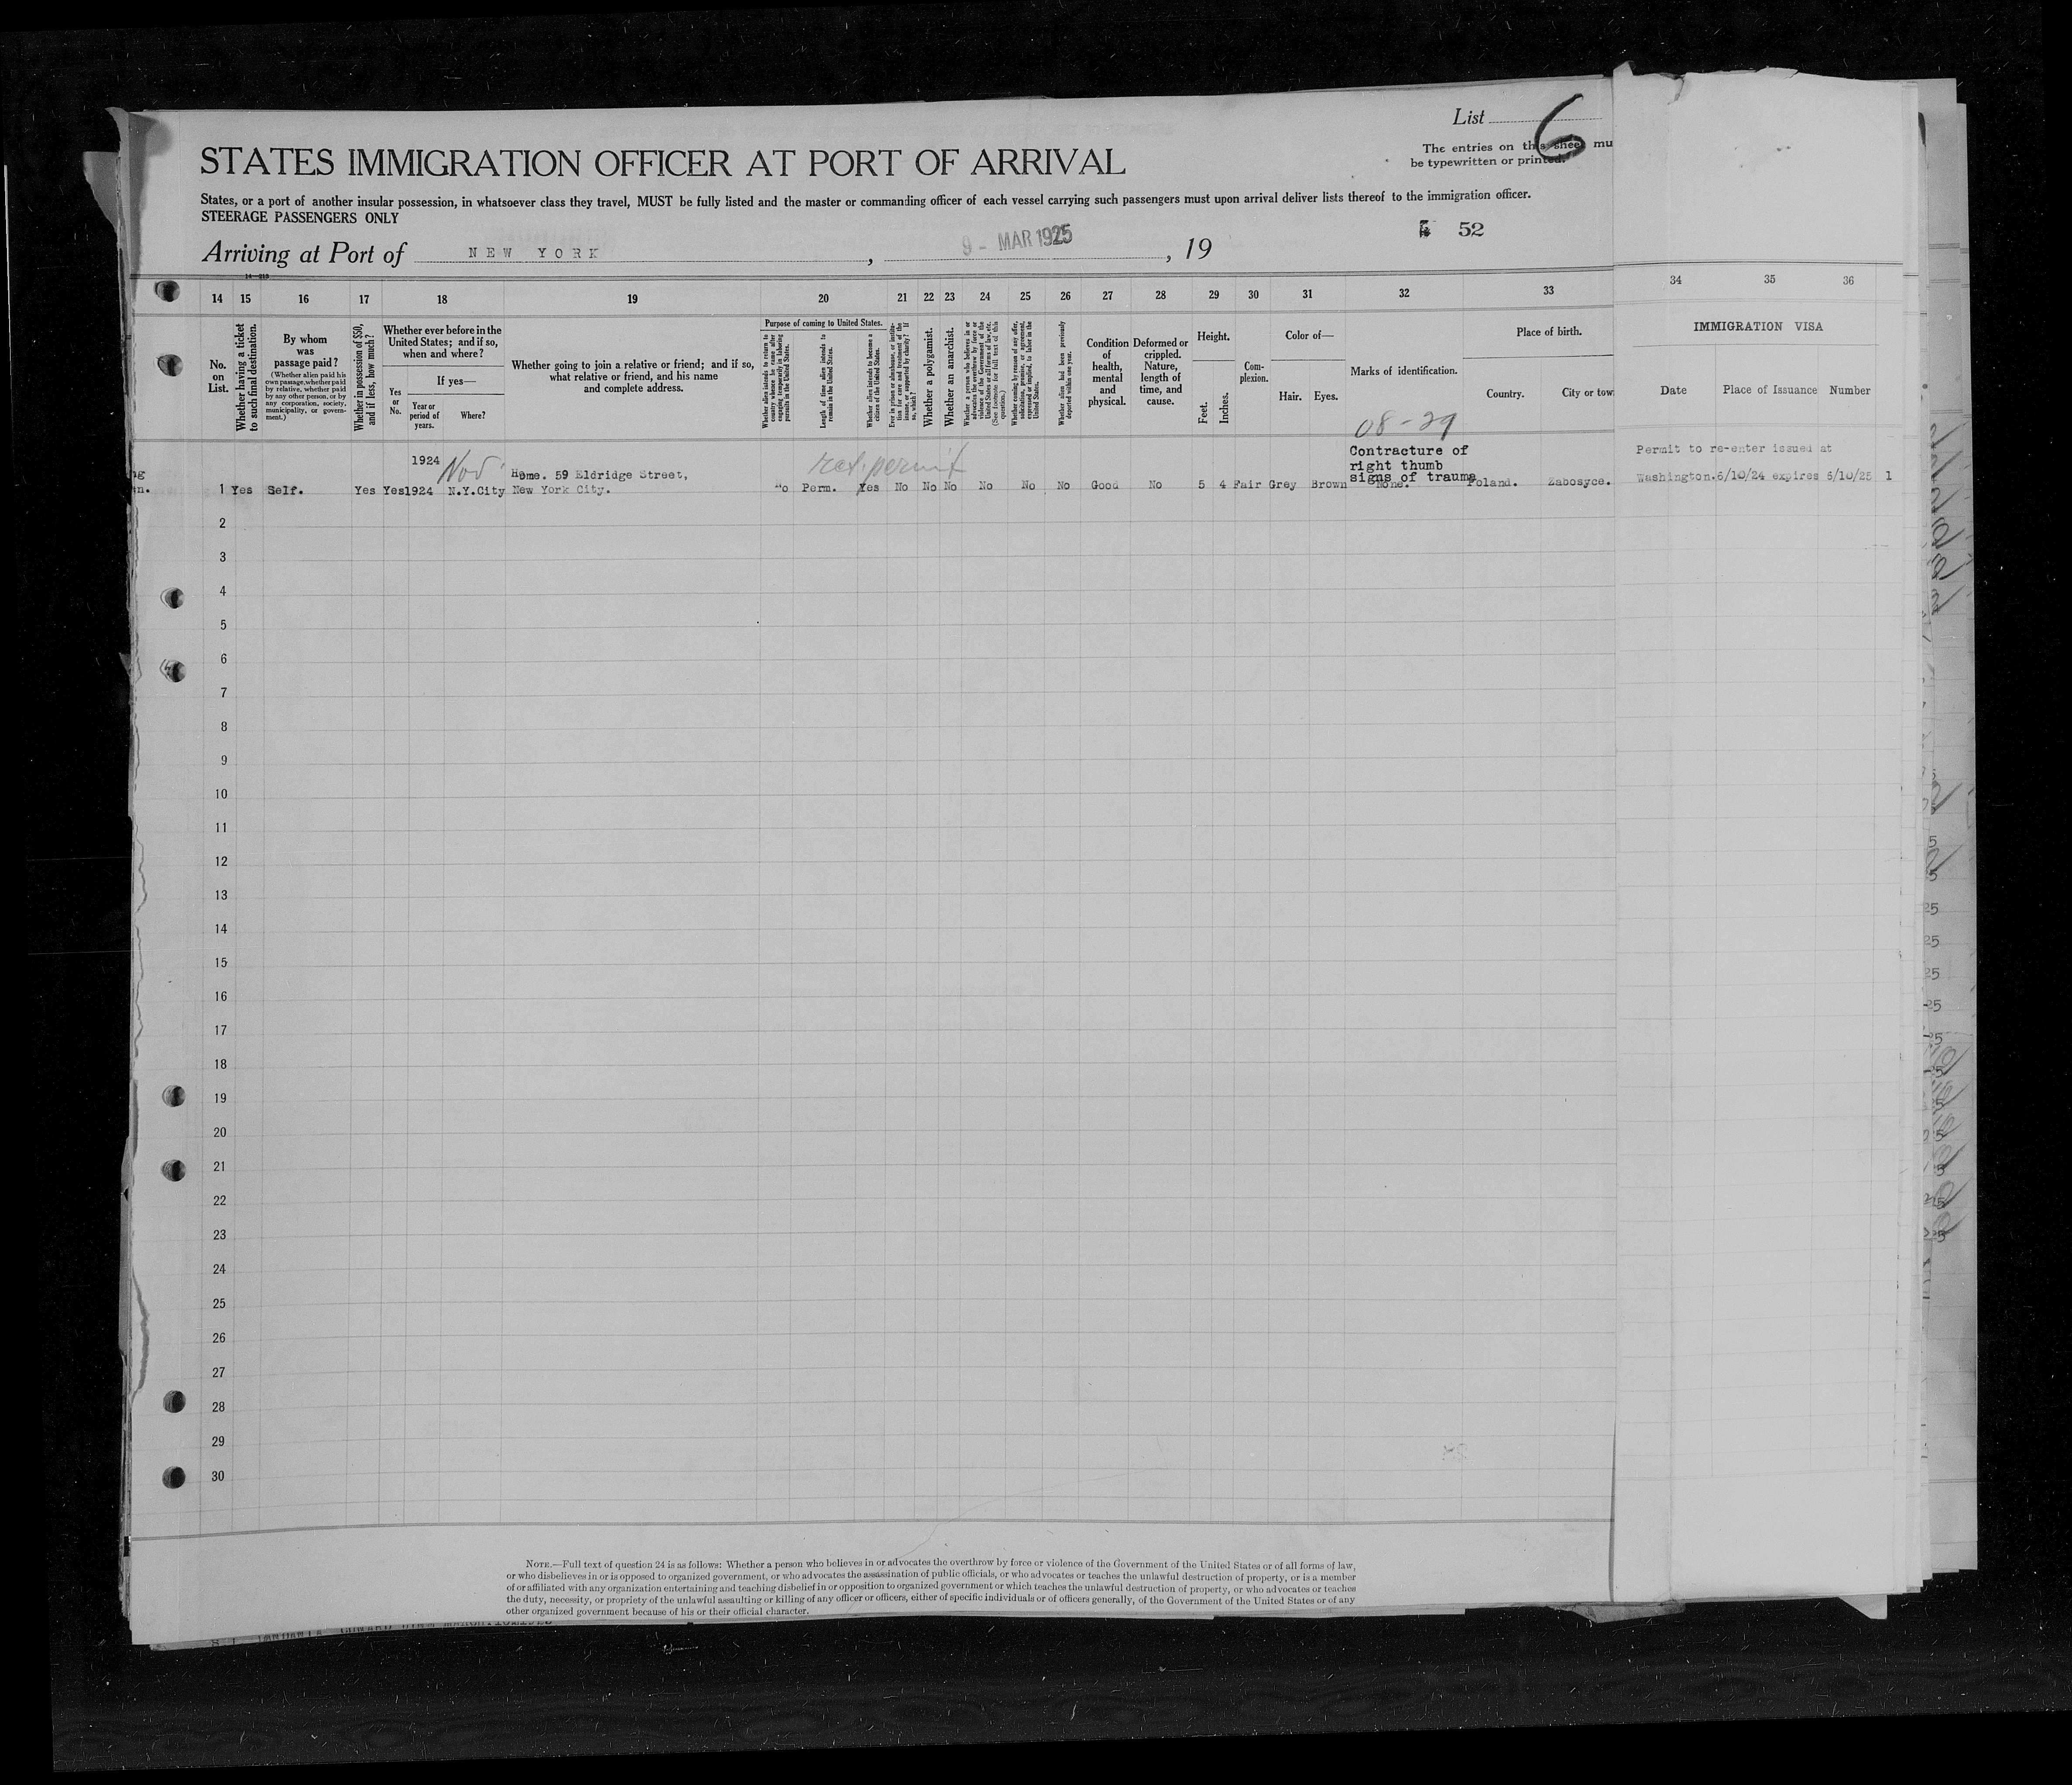 List 6
The entries on this sheet mu
be typewritten or printed.
STATES IMMIGRATION OFFICER AT PORT OF ARRIVAL
States, or a port of another insular possession, in whatsoever class they travel, MUST be fully listed and the master or commanding officer of each vessel carrying such passengers must upon arrival deliver lists thereof to the immigration officer.
STEERAGE PASSENGERS ONLY
52
Arriving at Port of NEW YORK , 9 - MAR 1925 , 19
14 15 16 17 18 19 20 21 22 23 24 25 26 27 28 29 30 31 32 33 34 35 36
No.
on
List.
Whether having a ticket
to such final destination.
By whom
was
passage paid?
(Whether alien paid his
own passage, whether paid
by relative, whether paid
by any other person, or by
any corporation, society,
municipality, or govern-
ment.)
Whether in possession of $50,
and if less, how much?
Whether ever before in the
United States; and if so,
when and where?
Yes
or
No.
If yes—
Year or
period of
years.
Where?
Whether going to join a relative or friend; and if so,
what relative or friend, and his name
and complete address.
Purpose of coming to United States.
Whether alien intends to return to
country whence he came after
engaging temporarily in laboring
pursuits in the United States.
Length of time alien intends to
remain in the United States.
Whether alien intends to become a
citizen of the United States.
Ever in prison or almshouse, or institu-
tion for care and treatment of the
insane, or supported by charity? If
so, which?
Whether a polygamist.
Whether an anarchist.
Whether a person who believes in or
advocates the overthrow by force or
violence of the Government of the
United States or all forms of law, etc.
(See footnote for full text of this
question.)
Whether coming by reason of any offer,
solicitation, promise, or agreement,
expressed or implied, to labor in the
United States.
Whether alien had been previously
deported within one year.
Condition
of
health,
mental
and
physical.
Deformed or
crippled.
Nature,
length of
time, and
cause.
Height.
Feet.
Inches.
Com-
plexion.
Color of—
Hair. Eyes.
Marks of identification.
Place of birth.
Country.
City or tow
IMMIGRATION VISA
Date Place of Issuance Number
08-29
1924
Nov
ret. permit
Contracture of
right thumb
signs of trauma
Permit to re-enter issued at
Home. 59 Eldridge Street,
1 Yes Self. Yes Yes 1924 N.Y.City New York City. No Perm. Yes No No No No No No Good No 5 4 Fair Grey Brown None. Poland. Zabosyce. Washington.6/10/24 expires 6/10/25 1
2
3
4
5
6
7
8
9
10
11
12
13
14
15
16
17
18
19
20
21
22
23
24
25
26
27
28
29
30
NOTE.—Full text of question 24 is as follows: Whether a person who believes in or advocates the overthrow by force or violence of the Government of the United States or of all forms of law,
or who disbelieves in or is opposed to organized government, or who advocates the assassination of public officials, or who advocates or teaches the unlawful destruction of property, or is a member
of or affiliated with any organization entertaining and teaching disbelief in or opposition to organized government or which teaches the unlawful destruction of property, or who advocates or teaches
the duty, necessity, or propriety of the unlawful assaulting or killing of any officer or officers, either of specific individuals or of officers generally, of the Government of the United States or of any
other organized government because of his or their official character.